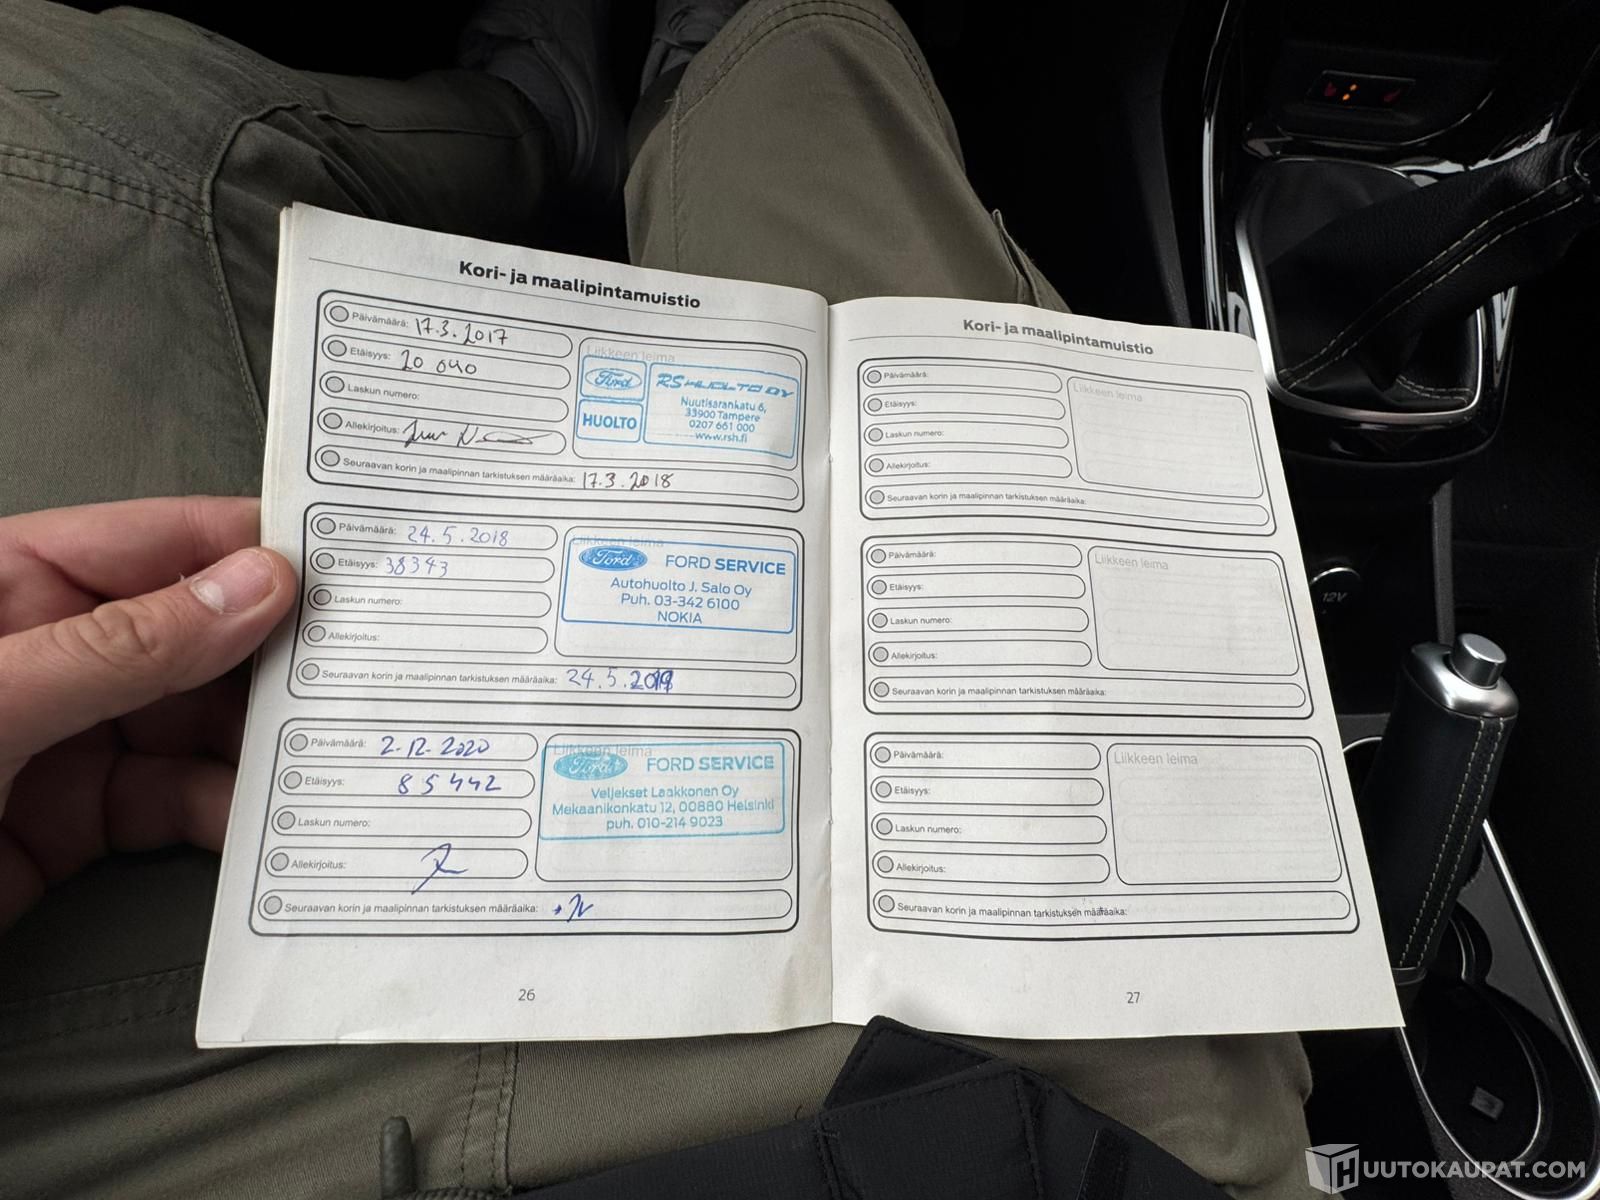 Kori- ja maalipintamuistio
Päivämäärä: 17.3.2017
Etäisyys: 20 040
Laskun numero:
Allekirjoitus:
Liikkeen leima
Ford
HUOLTO
RS HUOLTO OY
Nuutisarankatu 6,
33900 Tampere
0207 661 000
www.rsh.fi
Seuraavan korin ja maalipinnan tarkistuksen määräaika: 17.3.2018
Päivämäärä: 24.5.2018
Etäisyys: 38343
Laskun numero:
Allekirjoitus:
Liikkeen leima
Ford FORD SERVICE
Autohuolto J. Salo Oy
Puh. 03-342 6100
NOKIA
Seuraavan korin ja maalipinnan tarkistuksen määräaika: 24.5.2019
Päivämäärä: 2.12.2020
Etäisyys: 85442
Laskun numero:
Allekirjoitus:
Liikkeen leima
Ford FORD SERVICE
Veljekset Laakkonen Oy
Mekaanikonkatu 12, 00880 Helsinki
puh. 010-214 9023
Seuraavan korin ja maalipinnan tarkistuksen määräaika:
26
Kori- ja maalipintamuistio
Päivämäärä:
Etäisyys:
Laskun numero:
Allekirjoitus:
Liikkeen leima
Seuraavan korin ja maalipinnan tarkistuksen määräaika:
Päivämäärä:
Etäisyys:
Laskun numero:
Allekirjoitus:
Liikkeen leima
Seuraavan korin ja maalipinnan tarkistuksen määräaika:
Päivämäärä:
Etäisyys:
Laskun numero:
Allekirjoitus:
Liikkeen leima
Seuraavan korin ja maalipinnan tarkistuksen määräaika:
27
12V
HUUTOKAUPAT.COM